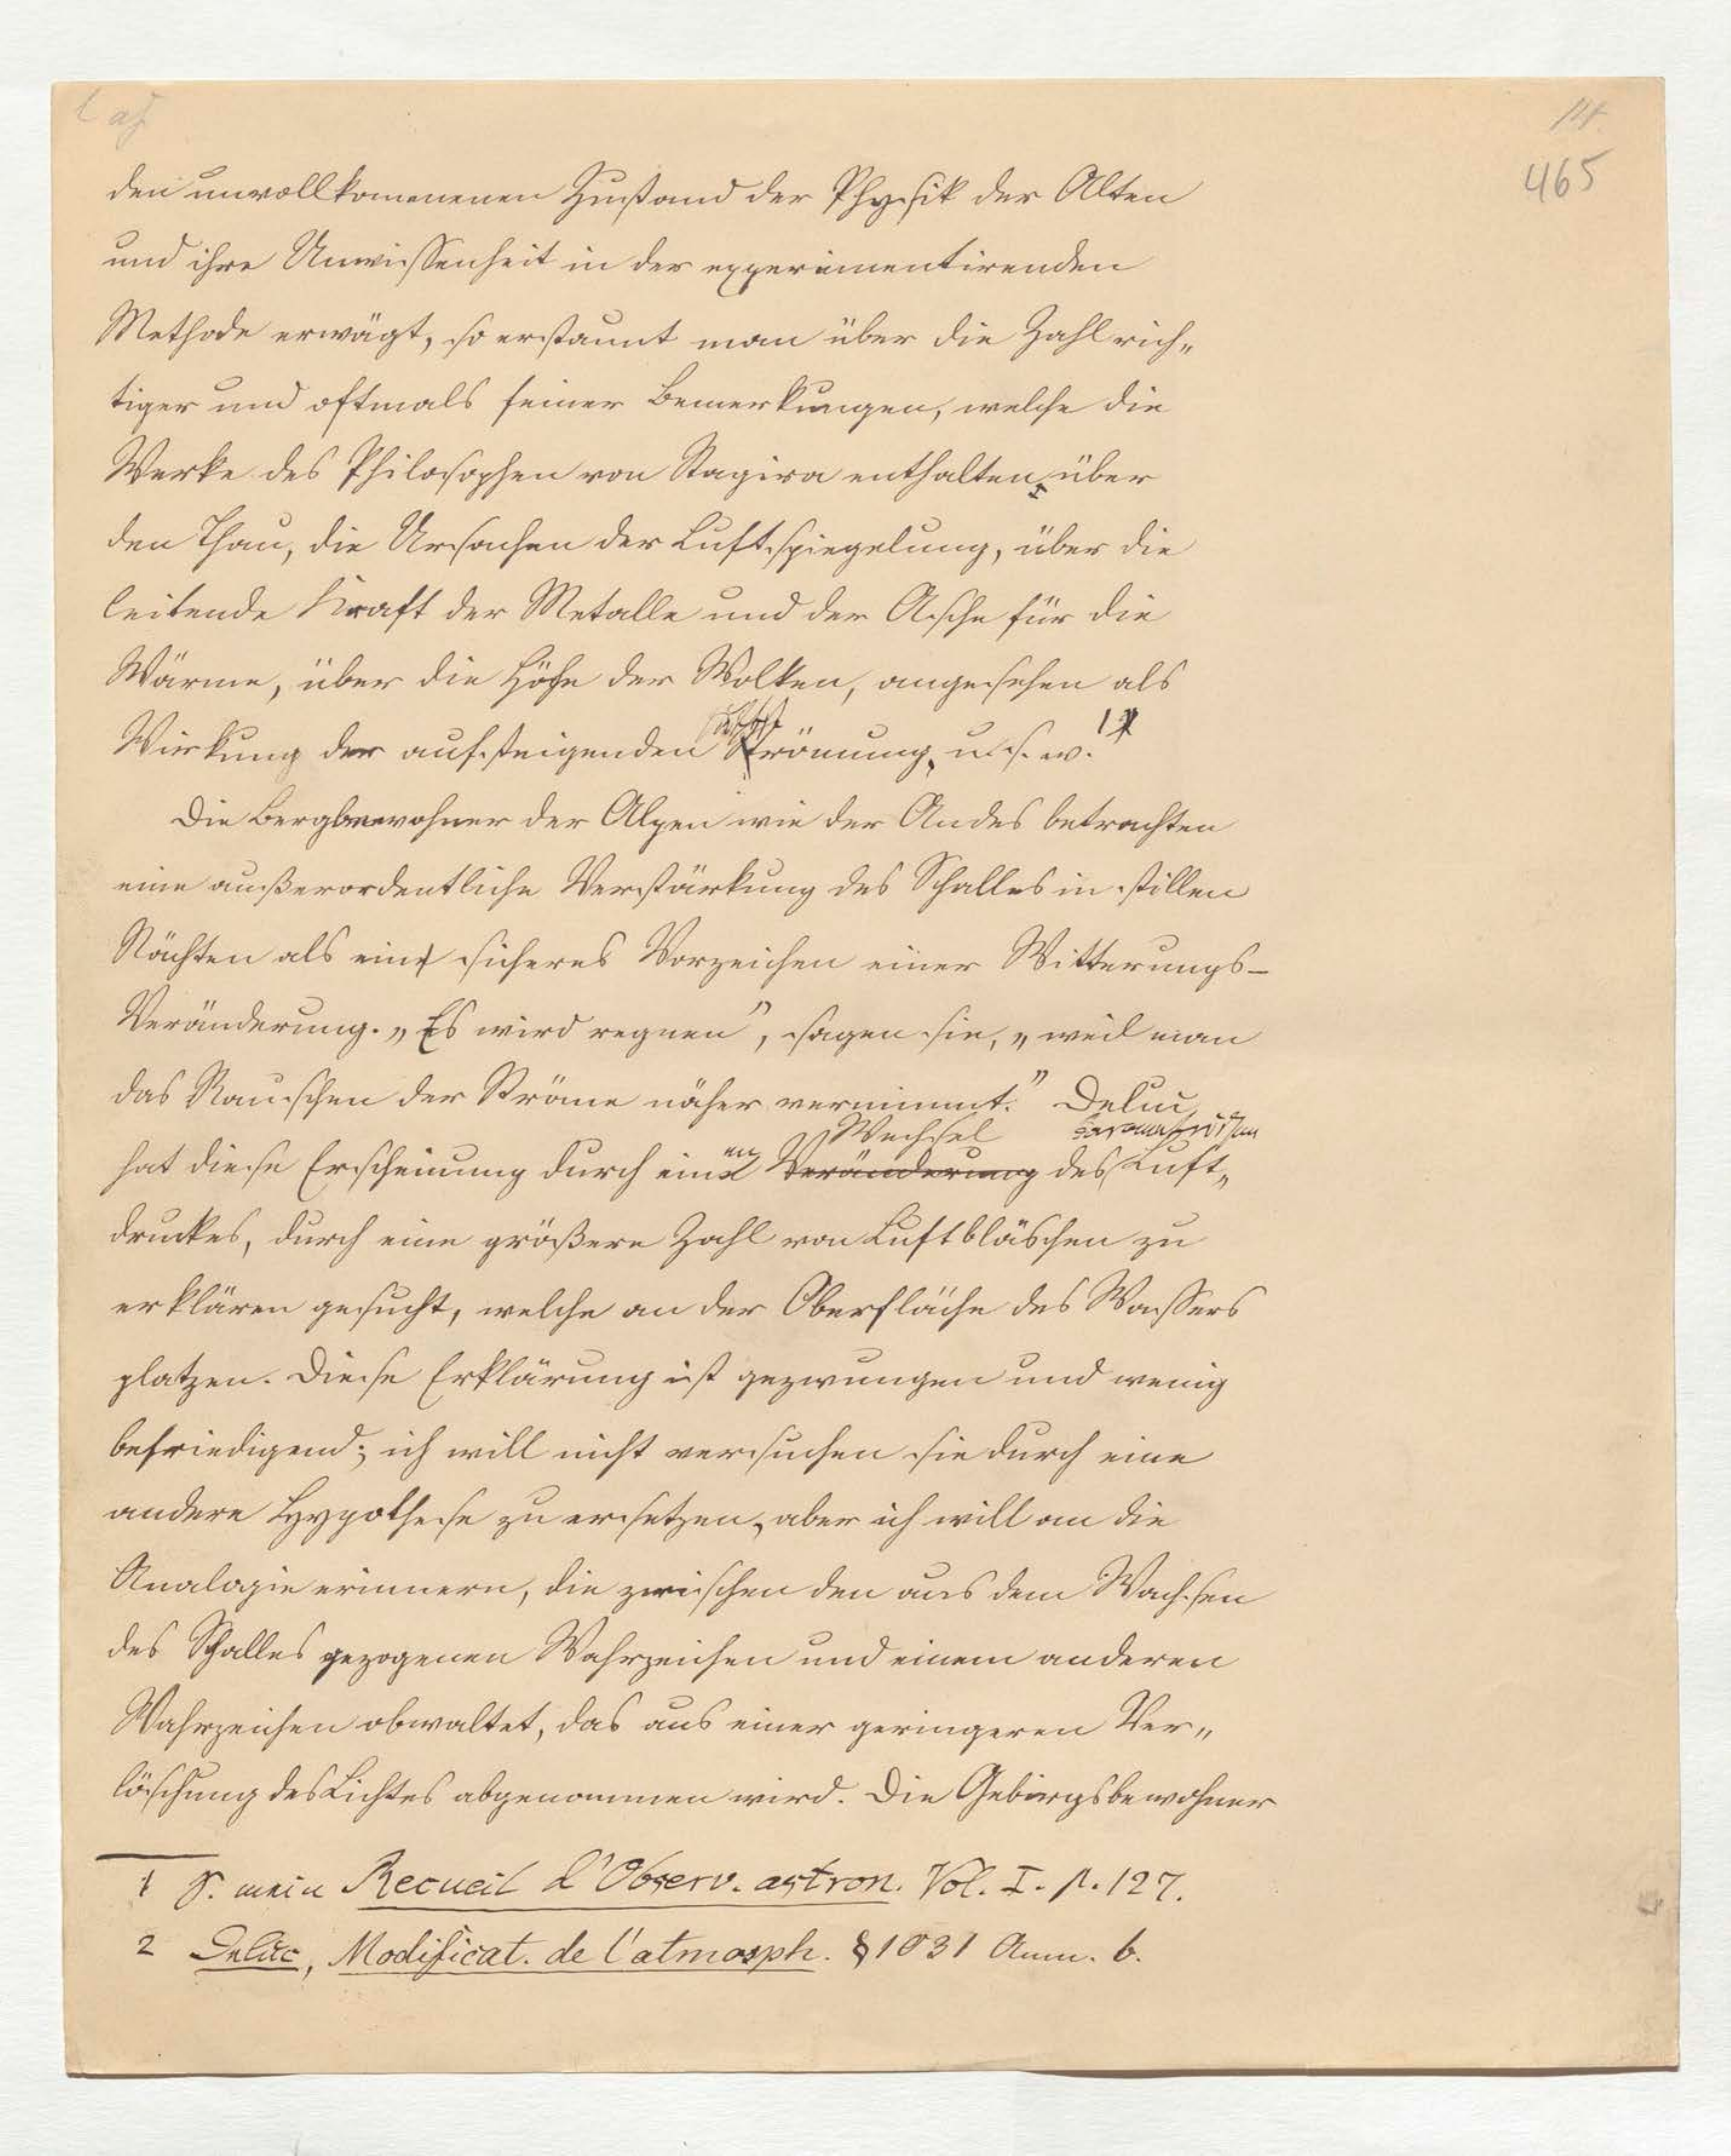 14.
465
den unvollkommenen Zustand der Physik der Alten
und ihre Unwissenheit in der experimentirenden
Methode erwägt, so erstaunt man über die Zahl rich„
tiger und oftmals feiner Bemerkungen, welche die
Werke des Philosophen von Stagira enthalten, über
den Thau, die Ursachen der Luftspiegelung, über die
leitende Kraft der Metalle und der Asche für die
Wärme, über die Höhe der Wolken, angesehen als
Wirkung der aufsteigenden Strömung, u. s. w. 1
Die Bergbewohner der Alpen wie der Andes betrachten
eine außerordentliche Verstärkung des Schalles in stillen
Nächten als ein sicheres Vorzeichen einer Witterungs-
Veränderung. „Es wird regnen", sagen sie, „weil man
das Rauschen der Ströme näher vernimmt." Deluc
Wechsel barometrischen
hat diese Erscheinung durch einen Veränderung des Luft„
druckes, durch eine größere Zahl von Luftbläschen zu
erklären gesucht, welche an der Oberfläche des Wassers
platzen. Diese Erklärung ist gezwungen und wenig
befriedigend; ich will nicht versuchen sie durch eine
andere Hypothese zu ersetzen, aber ich will an die
Analogie erinnern, die zwischen den aus dem Wachsen
des Schalles gezogenen Wahrzeichen und einem anderen
Wahrzeichen obwaltet, das aus einer geringeren Ver„
löschung des Lichtes abgenommen wird. Die Gebirgsbewohner
1 S. mein Recueil d'Observ. astron. Vol. I. p. 127.
2 Deluc, Modificat. de l'atmosph. § 1031 Anm. b.